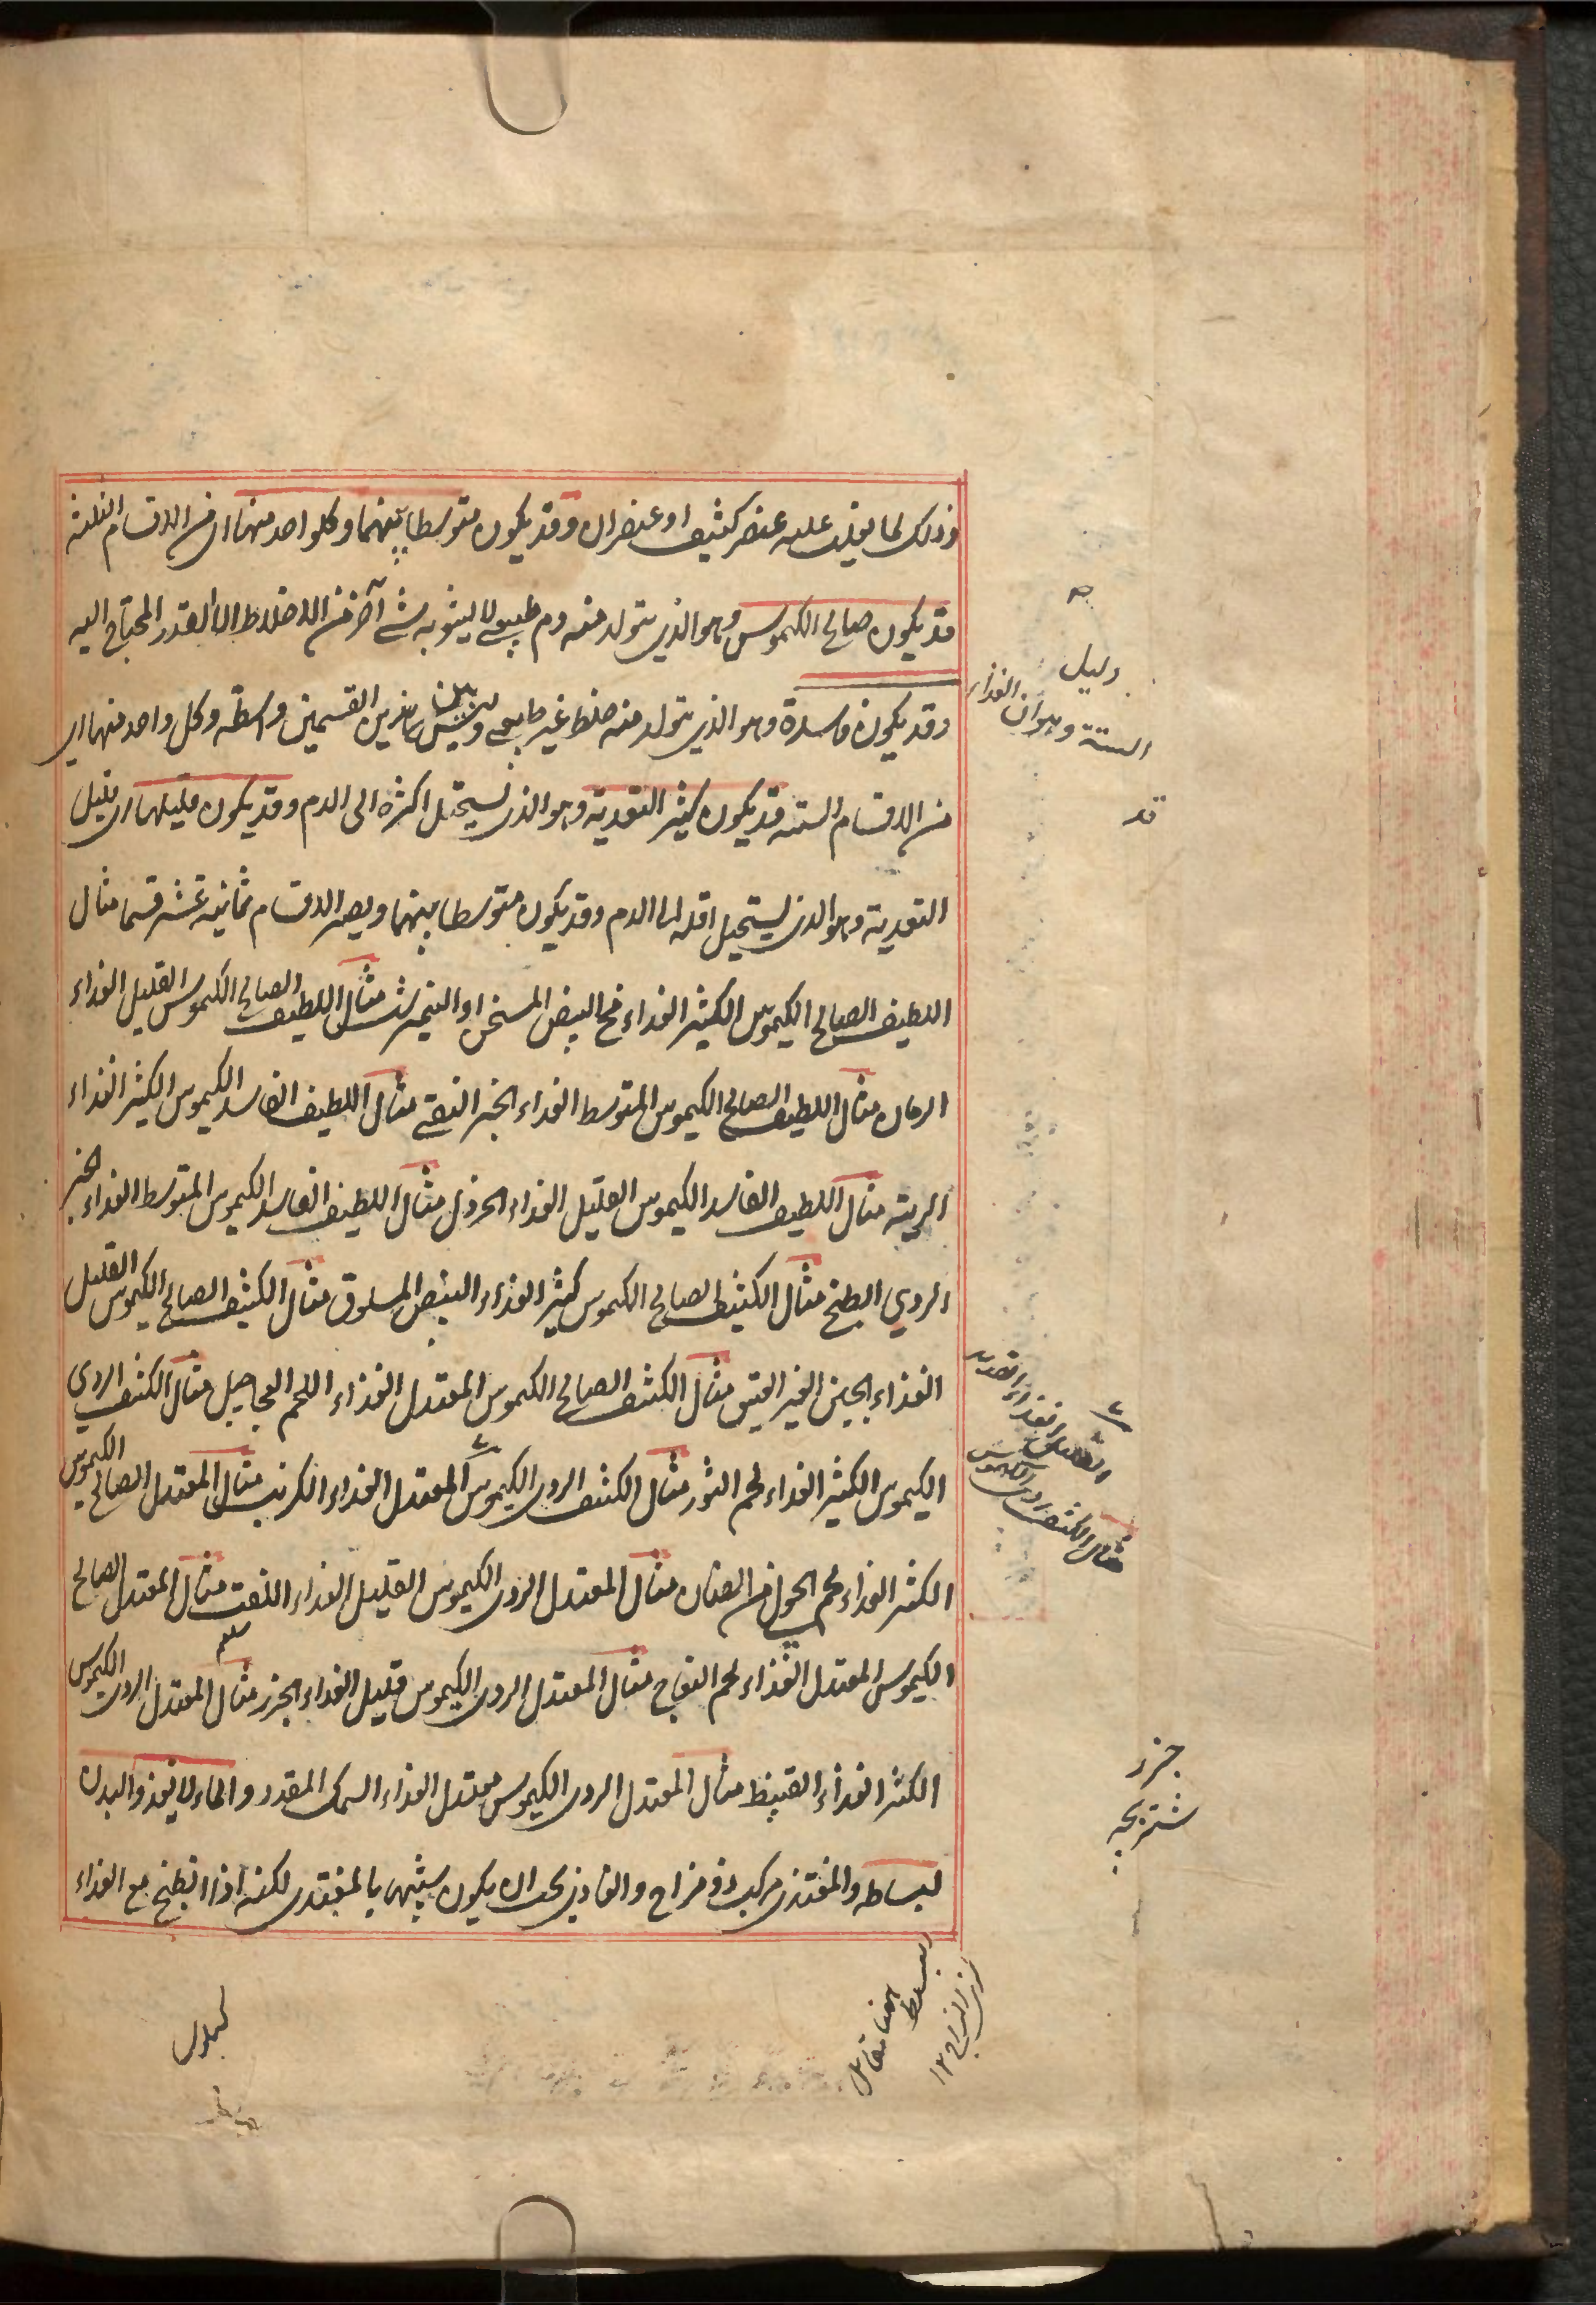 وذلك لما يغلب عليه عنصر كثيف او عنصران وقد يكون متوسطا بينهما وكلواحد منهما اى من الاقسام الثلثة
قد يكون صالح الكيموس وهو الذى يتولد منه دم طبيعى لا يشوبه شى آخر من الاخلاط الا القدر المحتاج اليه
وقد يكون فاسدة وهو الذى يتولد منه خلط غير طبيعى وليس بين هذين القسمين واسطة وكل واحد منهما اى
من الاقسام الستة قد يكون كثير التغدية وهو الذى يستحيل اكثره الى الدم وقد يكون قليلها اى قليل
التغدية وهو الذى يستحيل اقله الى الدم وقد يكون متوسطا بينهما ويصير الاقسام ثمانية عشر قسما مثال
اللطيف الصالح الكيموس الكثير الغداء مح البيض المسخن او النيمبرشت مثال اللطيف الصالح الكيموس القليل الغداء
الرمان مثال اللطيف الصالح الكيموس المتوسط الغداء الخبز النقى مثال اللطيف الفاسد الكيموس الكثير الغداء
الرية مثال اللطيف الفاسد الكيموس القليل الغداء الخردل مثال اللطيف الفاسد الكيموس المتوسط الغداء الخبز
الردي الطبخ مثال الكثيف الصالح الكيموس كثير الغداء البيض المسلوق مثال الكثيف الصالح الكيموس القليل
الغذاء الجبن الغير العتيق مثال الكثيف الصالح الكيموس المعتدل الغذاء اللحم العجاجيل مثال الكثيف الردى
الكيموس الكثير الغداء لحم الثور مثال الكثيف الردى الكيموس المعتدل الغذاء الكرنب مثال المعتدل الصالح الكيموس
الكثير الغداء لحم الحولى من الضان مثال المعتدل الردى الكيموس القليل الغداء اللفت مثال المعتدل الصالح
الكيموس المعتدل الغذاء لحم النعاج مثال المعتدل الردى الكيموس قليل الغداء الجزر مثال المعتدل الردى الكيموس
الكثير الغداء القنبيط مثال المعتدل الردى الكيموس معتدل الغذاء السمك المقدد والماء لا يغذو البدن
لبساطه والمغتذى مركب ذو مزاج والغاذى يجب ان يكون شبيها بالمغتدى لكنه اذا انطبخ مع الغذاء
دليل
الستة وهو ان الغذاء
قد
مثال الكثيف ردى الكيموس
جزر